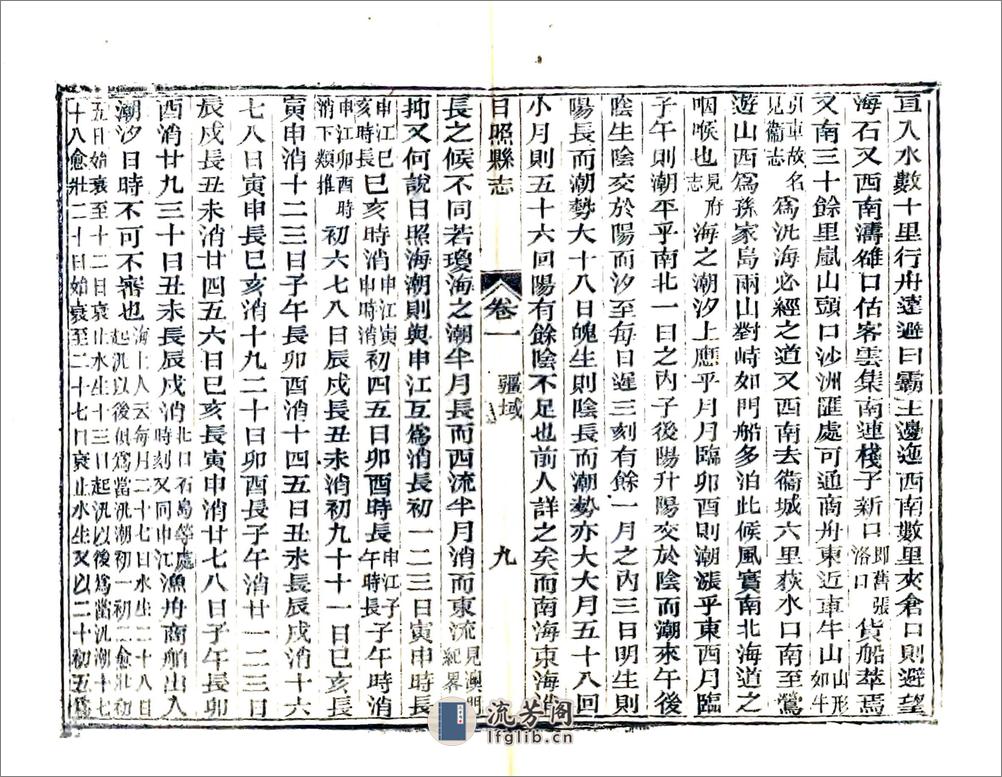 亘入水數十里行舟遠避曰霸王邊迤西南數里夾倉口則避望
海石又西南濤雒口估客雲集南連棧子新口即舊張洛口貨船萃焉
又南三十餘里嵐山頭口沙洲匯處可通商舟東近車牛山山形如牛
引車故名見衞志爲洗海必經之道又西南去衞城六里荻水口南至鶯
遊山西爲孫家島兩山對峙如門船多泊此候風實南北海道之
咽喉也見府志海之潮汐上應乎月月臨卯酉則潮漲乎東西月臨
子午則潮平乎南北一日之內子後陽升陽交於陰而潮來午後
陰生陰交於陽而汐至每日遲三刻有餘一月之內三日明生則
陽長而潮勢大十八日魄生則陰長而潮勢亦大大月五十八回
小月則五十六回陽有餘陰不足也前人詳之矣而南海東海消
日照縣志 卷一 疆域 九
長之候不同若瓊海之潮半月長而西流半月消而東流見澳門紀畧
抑又何說日照海潮則與申江互爲消長初一二三日寅申時長
申江巳亥時長巳亥時消申江寅申時消初四五日卯酉時長申江子午時長子午時消
申江卯酉時消下類推初六七八日辰戌長丑未消初九十十一日巳亥長
寅申消十二三日子午長卯酉消十四五日丑未長辰戌消十六
七八日寅申長巳亥消十九二十日卯酉長子午消廿一二三日
辰戌長丑未消廿四五六日巳亥長寅申消廿七八日子午長卯
酉消廿九三十日丑未長辰戌消北口石島等處時刻又同申江漁舟商舶出入
潮汐日時不可不審也海上人云每月二十七日水生二十八日起汛以後俱爲當汛潮初一初二愈壯初
五日始衰至十二日衰止水生十三日起汛以後爲當汛潮十七
十八愈壯二十日始衰至二十七日衰止水生又以二十初五爲